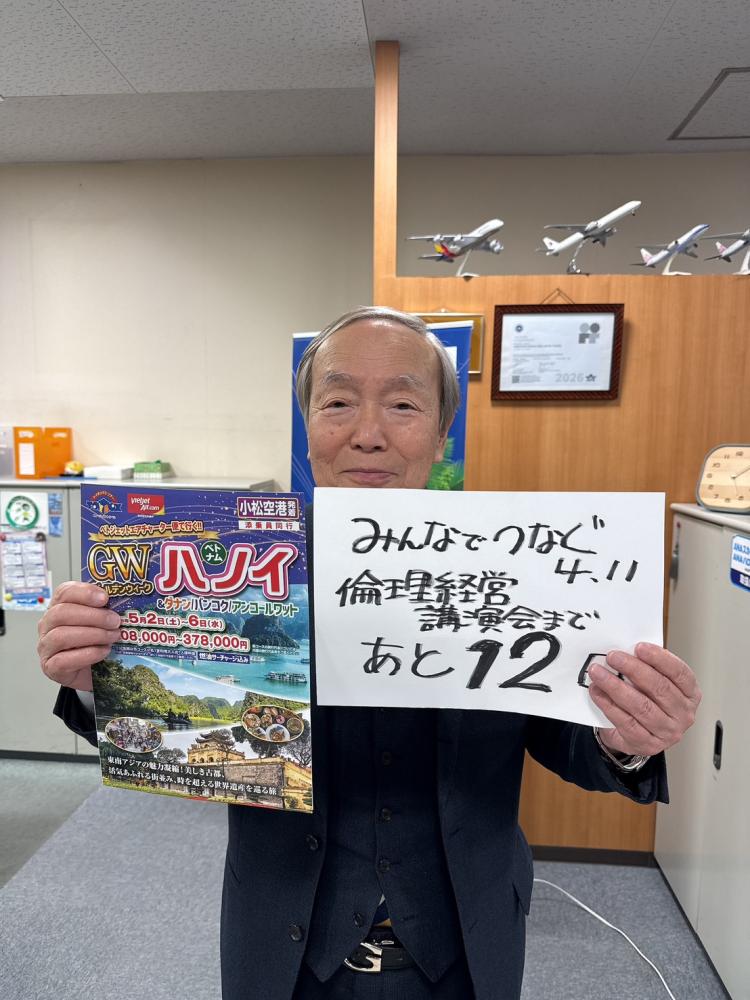 vietjet Air.com
小松空港発着
添乗員同行
ベトジェットエアチャーター便で行く!!
GW
ゴールデンウィーク
ベトナム
ハノイ
&ダナン/バンコク/アンコールワット
5月2日(土)~6日(水)
08,000円~378,000円
燃油サーチャージ込み
東南アジアの魅力凝縮!美しき古都、
活気あふれる街並み、時を超える世界遺産を巡る旅
みんなでつなご
4.11
倫理経営
講演会まで
あと12
2026